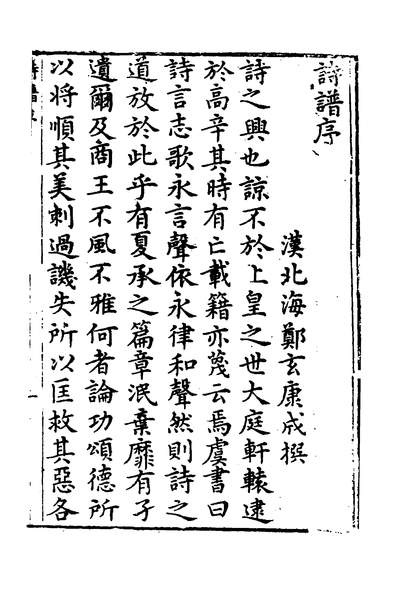 詩譜序
漢北海鄭玄康成撰
詩之興也諒不於上皇之世大庭軒轅逮
於高辛其時有亡載籍亦蔑云焉虞書曰
詩言志歌永言聲依永律和聲然則詩之
道放於此乎有夏承之篇章泯棄靡有孑
遺爾及商王不風不雅何者論功頌德所
以将順其美刺過譏失所以匡救其惡各
一